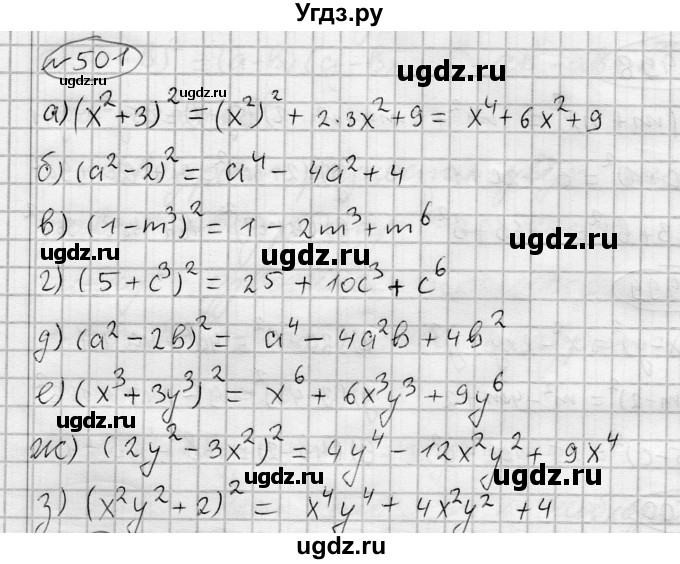 Угдз.ру
№501
ugdz.ru ugdz.ru
а) (x²+3)² = (x²)² + 2·3x² + 9 = x⁴ + 6x² + 9
ugdz.ru
б) (a²-2)² = a⁴ - 4a² + 4
в) (1-m³)² = 1 - 2m³ + m⁶
ugdz.ru ugdz.ru ugdz.ru
г) (5+c³)² = 25 + 10c³ + c⁶
д) (a²-2в)² = a⁴ - 4a²в + 4в²
ugdz.ru
е) (x³+3y³)² = x⁶ + 6x³y³ + 9y⁶
ж) (2y²-3x²)² = 4y⁴ - 12x²y² + 9x⁴
ugdz.ru ugdz.ru
з) (x²y²+2)² = x⁴y⁴ + 4x²y² + 4
ugdz.ru